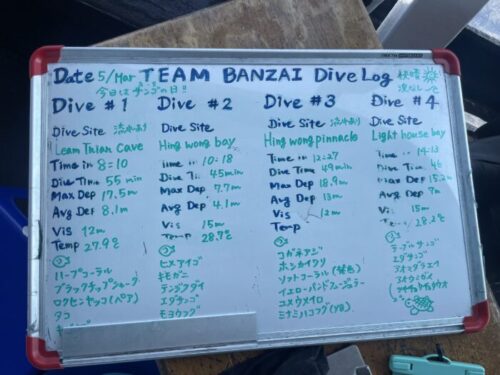 Date 5/Mar TEAM BANZAI Dive Log 快晴
今日はサンゴの日!! 波なし
Dive #1
Dive Site 流れあり
Leam Thian Cave
Time in 8:10
Dive Time 55 min
Max Dep 17.5m
Avg Dep 8.1m
Vis 12m
Temp 27.9℃
ハープコーラル
ブラックチップシャーク
ロクセンヤッコ(ペア)
タコ
Dive #2
Dive Site
Hing wong bay
Time in 10:18
Dive Ti. 45min
Max Dep 7.7m
Avg Dep 4.1m
Vis 15m
Temp 28.7℃
ヒメアイゴ
キビガニ
テングダイ
エダサンゴ
モヨウフグ
Dive #3
Dive Site 流れあり
Hing wong pinnacle
Time in 12:27
Dive Time 49min
Max Dep 18.9m
Avg Dep 13m
Vis 12m
Temp
コガネアジ
ホンカイワリ
ソフトコーラル(紫色)
イエローバンドフュージラー
ユメウメイロ
ミナミハコフグ(YG)
Dive #4
Dive Site
Light house bay
Time in 14:13
Dive Ti. 46
Max Dep 15.2m
Avg Dep 7m
Vis 15m
Temp 28.2℃
テーブルサンゴ
エダサンゴ
アオウミガメ